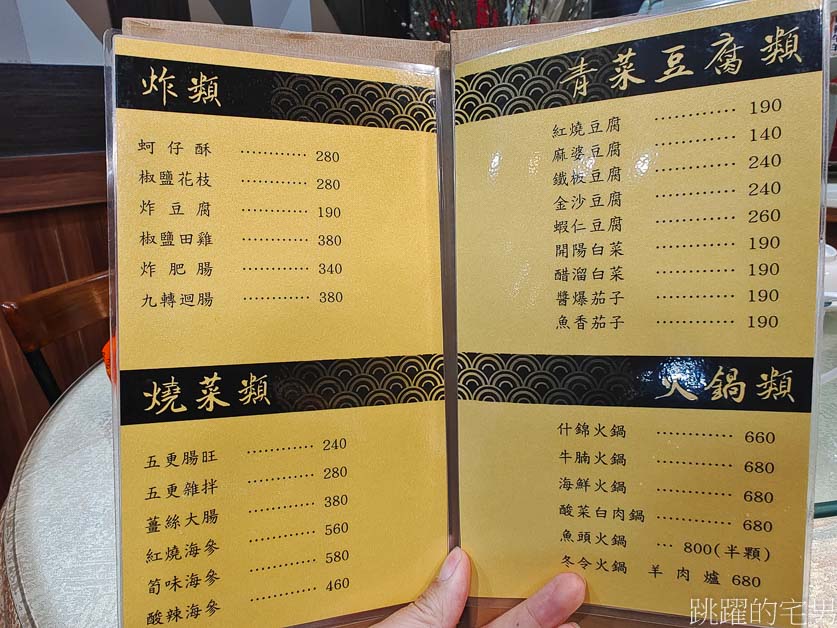 炸類
蚵仔酥 ………… 280
椒鹽花枝 ………… 280
炸豆腐 ………… 190
椒鹽田雞 ………… 380
炸肥腸 ………… 340
九轉迴腸 ………… 380
燒菜類
五更腸旺 ………… 240
五更雜拌 ………… 280
薑絲大腸 ………… 380
紅燒海參 ………… 560
筍味海參 ………… 580
酸辣海參 ………… 460
青菜豆腐類
紅燒豆腐 ………… 190
麻婆豆腐 ………… 140
鐵板豆腐 ………… 240
金沙豆腐 ………… 240
蝦仁豆腐 ………… 260
開陽白菜 ………… 190
醋溜白菜 ………… 190
醬爆茄子 ………… 190
魚香茄子 ………… 190
火鍋類
什錦火鍋 ………… 660
牛腩火鍋 ………… 680
海鮮火鍋 ………… 680
酸菜白肉鍋 ………… 680
魚頭火鍋 … 800(半顆)
冬令火鍋 羊肉爐 680
跳躍的宅男